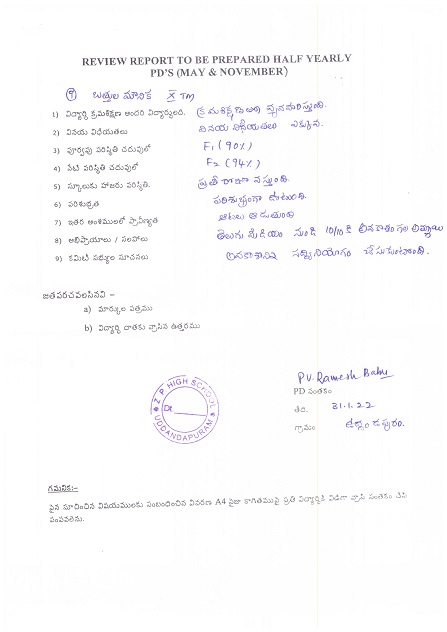 REVIEW REPORT TO BE PREPARED HALF YEARLY
PD'S (MAY & NOVEMBER)
బత్తుల మౌనిక X TM
1) విద్యార్థి క్రమశిక్షణ అందరి విద్యార్థులలో. క్రమశిక్షణగా ప్రవర్తిస్తుంది.
2) వినయ విధేయతలు వినయ విధేయతలు ఎక్కువ.
3) పూర్వపు పరిస్థితి చదువులో F1 (90%)
4) నేటి పరిస్థితి చదువులో F2 (94%)
5) స్కూలుకు హాజరు పరిస్థితి. ప్రతి రోజూ వస్తుంది.
6) పరిశుభ్రత పరిశుభ్రంగా ఉంటుంది.
7) ఇతర అంశములలో ప్రావీణ్యత ఆటలు ఆడుతుంది
8) అభిప్రాయాలు / సలహాలు తెలుగు మీడియం నుండి 10/10 కి అవకాశం గల అమ్మాయి
9) కమిటీ సభ్యుల సూచనలు అవకాశాన్ని సద్వినియోగం చేసుకుంటుంది.
జతపరచవలసినవి :-
a) మార్కుల పత్రము
b) విద్యార్థి దాతకు వ్రాసిన ఉత్తరము
Z P HIGH SCHOOL
Dt
UDDANDAPURAM
P.V. Ramesh Babu
PD సంతకం
తేది. 31.1.22
గ్రామం ఉద్దండపురం.
గమనిక:-
పైన సూచించిన విషయములకు సంబంధించిన వివరణ A4 సైజు కాగితముపై ప్రతి విద్యార్థికి విడిగా వ్రాసి సంతకం చేసి
పంపవలెను.